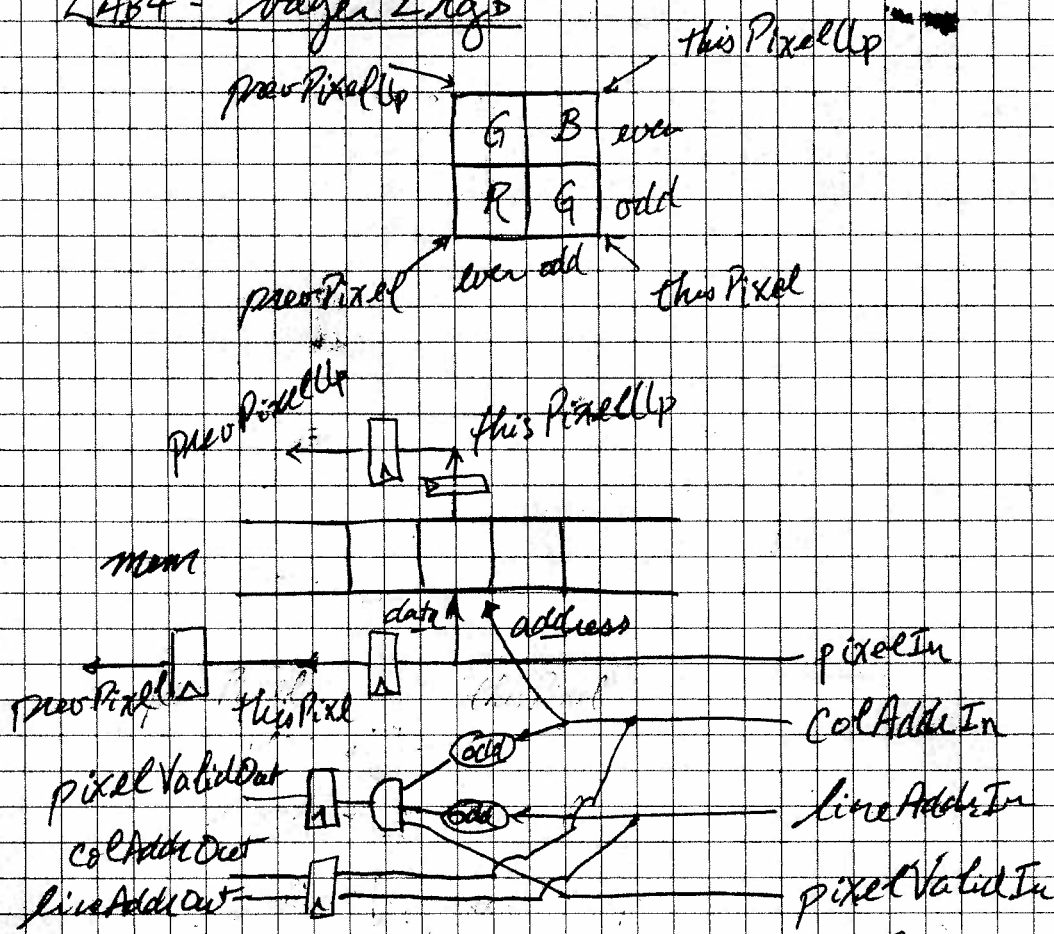 LAB4 - bayer2rgb
thisPixelUp
prevPixelUp
G B even
R G odd
even odd
prevPixel
thisPixel
prevPixelUp
thisPixelUp
mem
data address
pixelIn
prevPixel thisPixel
colAddrIn
odd
pixelValidOut
odd lineAddrIn
colAddrOut
lineAddrOut
pixelValidIn